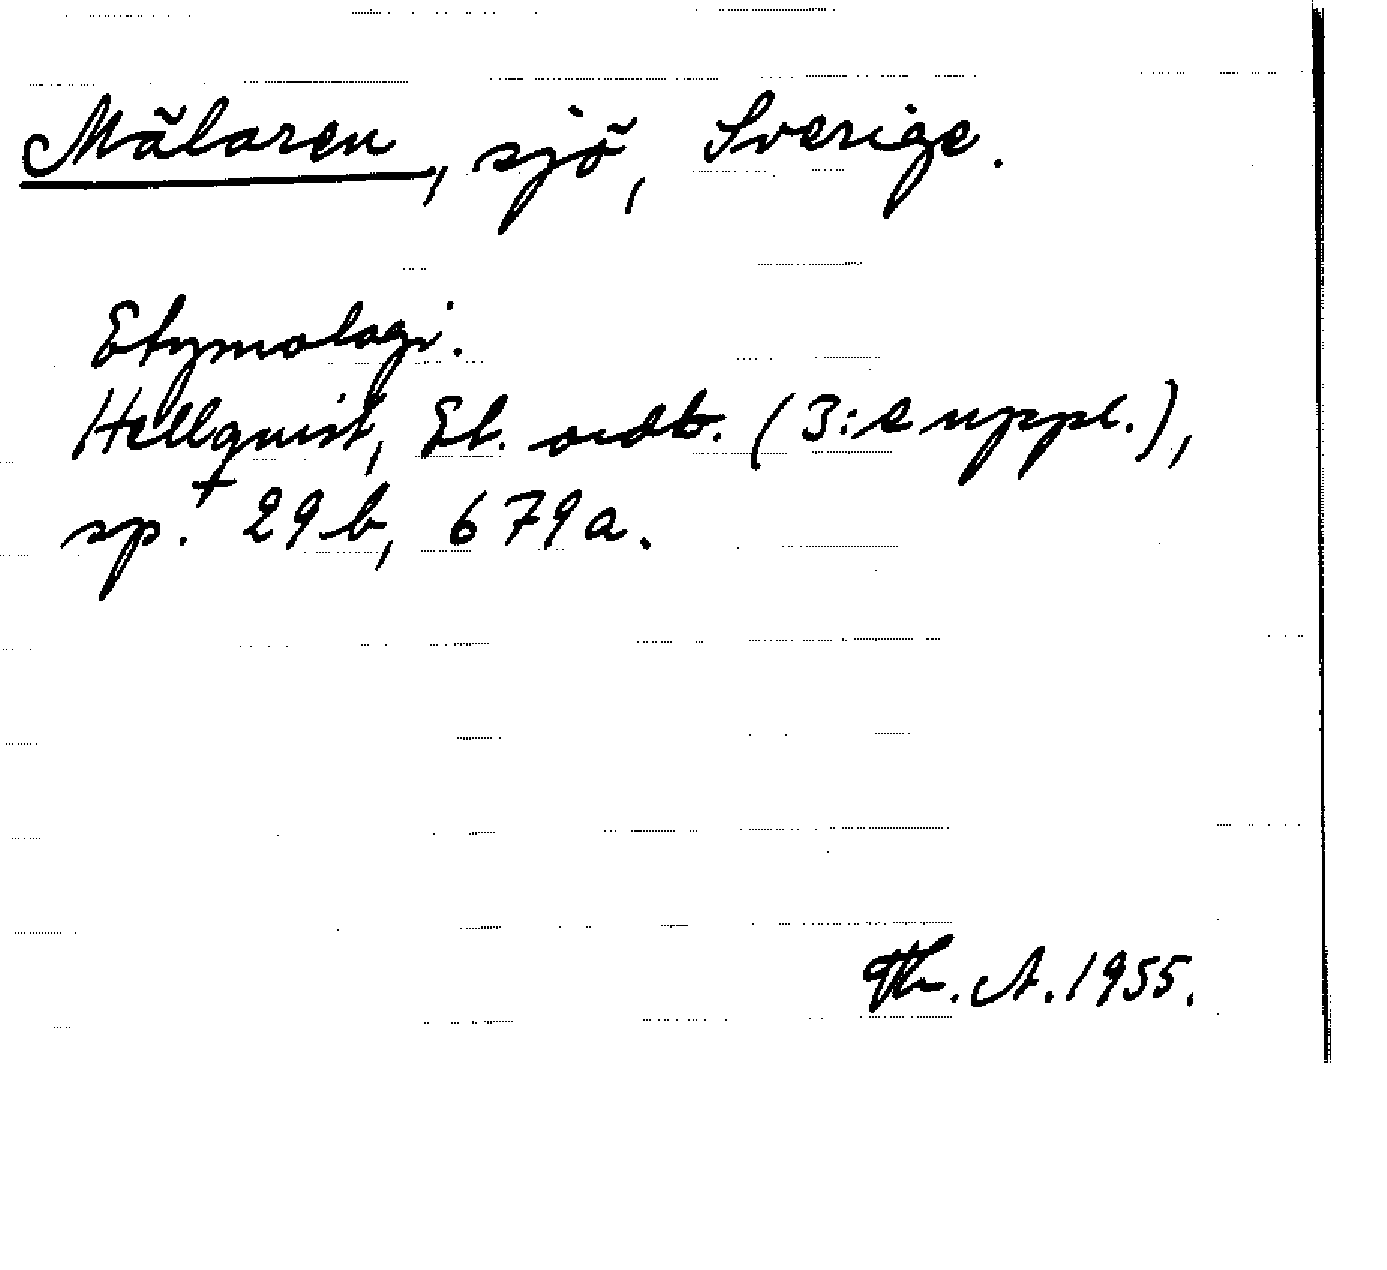 Mälaren, sjö, Sverige.
Etymologi.
Hellquist, Et. ordb. (3:e uppl.),
sp. 29b, 679a.
Th. A. 1955.